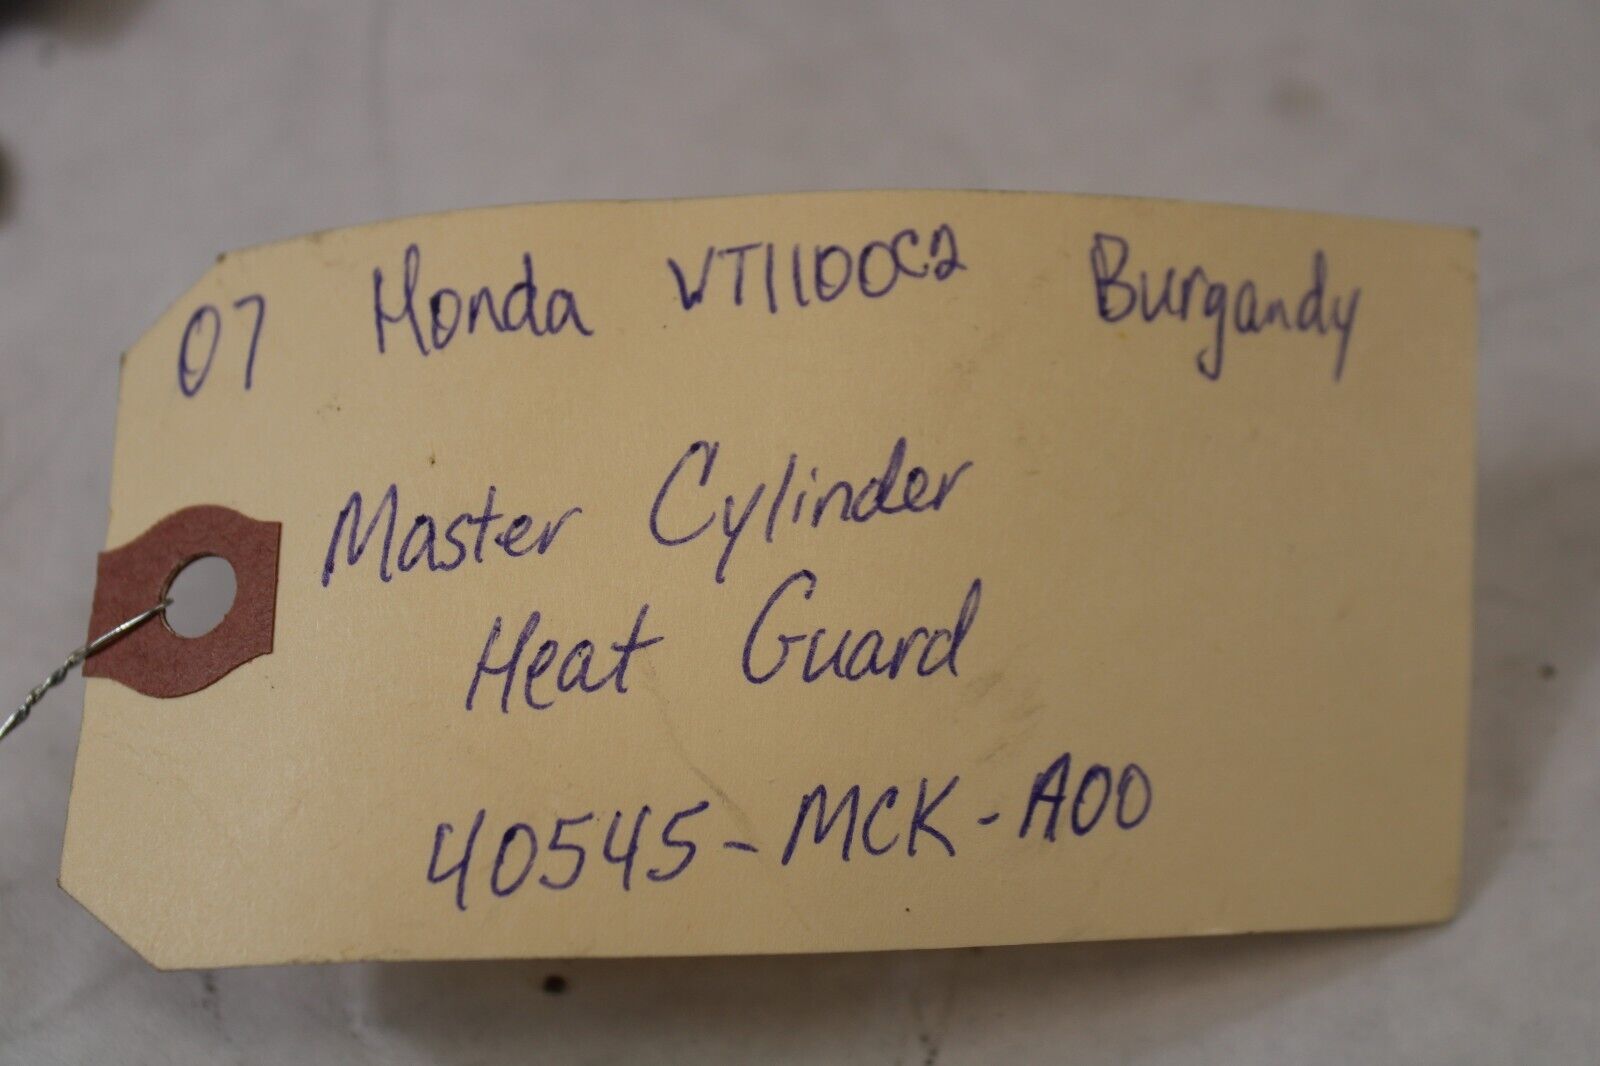 07 Honda VT1100C2 Burgandy
Master Cylinder
Heat Guard
40545-MCK-A00